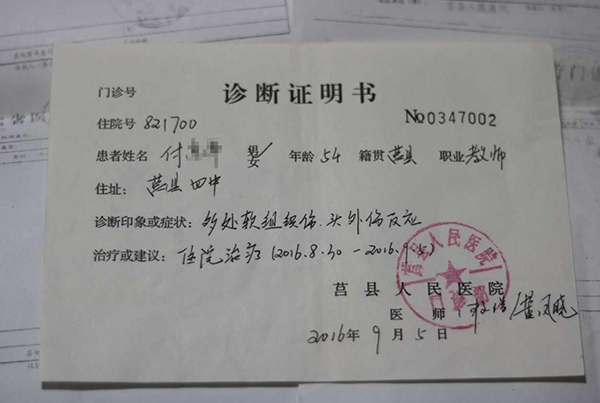 诊断证明书
门诊号
住院号 821700 No0347002
患者姓名 付 男/女 年龄 54 籍贯 莒县 职业 教师
住址: 莒县四中
诊断印象或症状: 多处软组织伤.头外伤反应
治疗或建议: 住院治疗(2016.8.30-2016.9.5)
莒县人民医院
莒县人民医院
医师
2016年9月5日
门诊